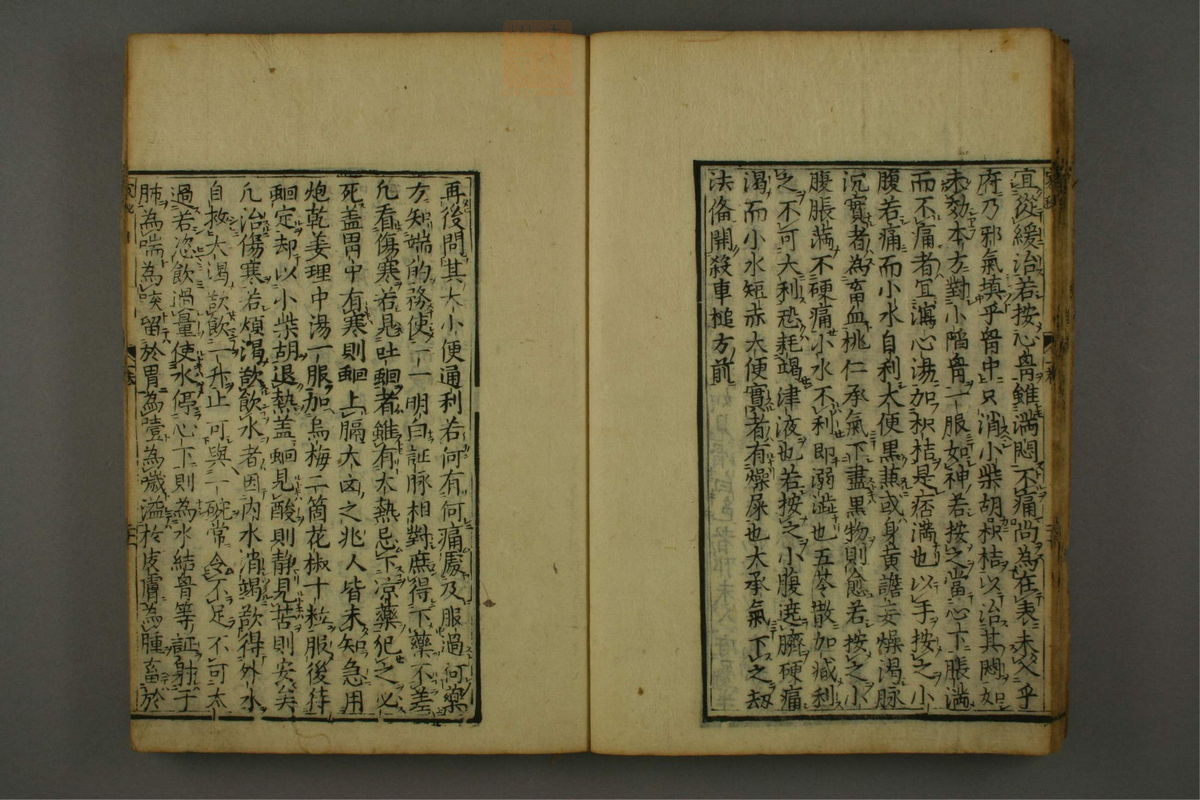 宜從緩治若按心胷雖滿悶不痛尚為在表未入乎
府乃邪氣填乎胷中只消小柴胡枳桔以治其悶如
未効本方對小陷胷一服如神若按之當心下脹滿
而不痛者宜瀉心湯加枳桔是痞滿也以手按之小
腹若痛而小水自利大便黒蒹或身黄譫妄燥渴脉
沉實者為畜血桃仁承氣下盡黒物則愈若按之小
腹脹滿不硬痛小水不利即溺澁也五苓散加减利
之不可大利恐耗竭津液也若按之小腹遶臍硬痛
渴而小水短赤大便實者有燥屎也大承氣下之劫
法俻開殺車槌方前
再後問其大小便通利若何有何痛處及服過何藥
方知端的務使一一明白証脉相對庶得下藥不差
凢看傷寒若見吐蛔者雖有大熱忌下凉藥犯之必
死盖胃中有寒則蛔上膈大凶之兆人皆未知急用
炮乾姜理中湯一服加烏梅二箇花椒十粒服後待
蛔定却以小柴胡退熱盖蛔見酸則静見苦則安矣
凢治傷寒若煩渴飲飲水者因内水消竭欲得外水
自救大渴欲飲一升止可與一碗常令不足不可太
過若恣飲過量使水停心下則為水結胷等証射于
肺為喘為咳留於胃為噎為噦溢於皮膚為腫畜於